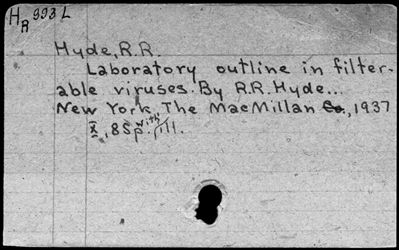 H 993 L
R
Hyde, R.R.
Laboratory outline in filter-
able viruses. By R.R. Hyde...
New York, The MacMillan Co., 1937
X, 85p. with ill.